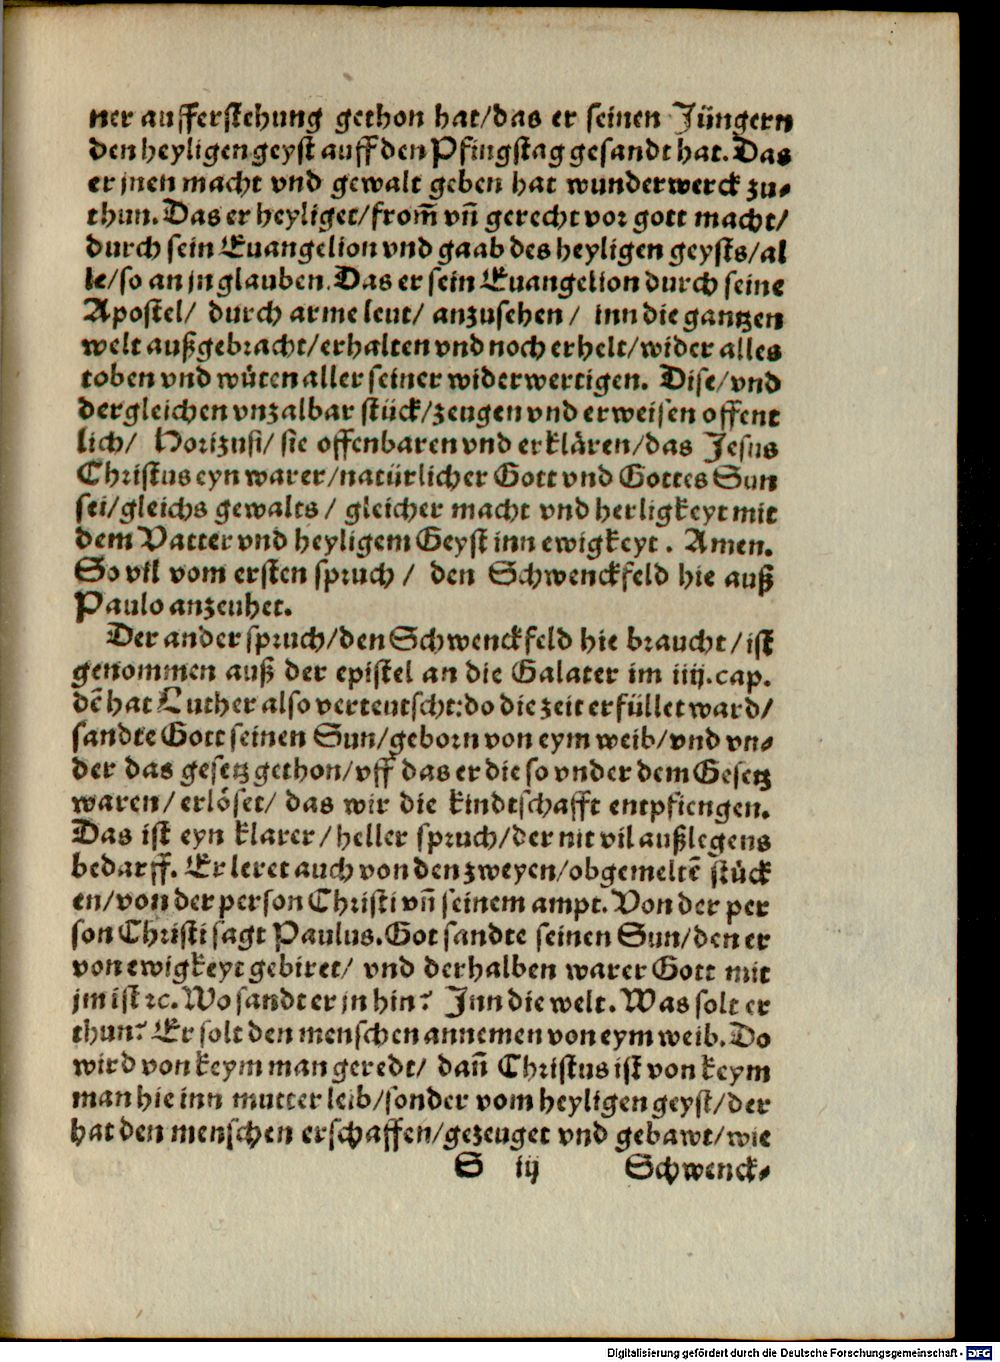 ner aufferstehung gethon hat/das er seinen Jüngern
den heyligen geyst auff den Pfingstag gesandt hat. Das
er jnen macht vnd gewalt geben hat wunderwerck zu-
thun. Das er heyliget/from̃ vñ gerecht vor gott macht/
durch sein Euangelion vnd gaab des heyligen geysts/al
le/so an jn glauben. Das er sein Euangelion durch seine
Apostel/ durch arme leut/ anzusehen/ inn die gantzen
welt außgebracht/erhalten vnd noch erhelt/wider alles
toben vnd wüten aller seiner widerwertigen. Dise/vnd
dergleichen vnzalbar stück/zeugen vnd erweisen offent
lich/ Horizusi/ sie offenbaren vnd erklären/das Jesus
Christus eyn warer/natürlicher Gott vnd Gottes Sun
sei/gleichs gewalts/ gleicher macht vnd herligkeyt mit
dem Vatter vnd heyligem Geyst inn ewigkeyt. Amen.
So vil vom ersten spruch/ den Schwenckfeld hie auß
Paulo anzeuhet.
Der ander spruch/den Schwenckfeld hie braucht/ist
genommen auß der epistel an die Galater im iiij.cap.
dẽ hat Luther also verteutscht:do die zeit erfüllet ward/
sandte Gott seinen Sun/geborn von eym weib/vnd vn-
der das gesetz gethon/vff das er die so vnder dem Gesetz
waren/erlöset/ das wir die kindtschafft entpfiengen.
Das ist eyn klarer/heller spruch/der nit vil außlegens
bedarff. Er leret auch von den zweyen/obgemeltẽ stück
en/von der person Christi vñ seinem ampt. Von der per
son Christi sagt Paulus. Got sandte seinen Sun/den er
von ewigkeyt gebiret/ vnd derhalben warer Gott mit
jm ist ꝛc. Wo sandt er jn hin? Inn die welt. Was solt er
thun? Er solt den menschen annemen von eym weib. Do
wird von keym man geredt/ dañ Christus ist von keym
man hie inn mutter leib/sonder vom heyligen geyst/der
hat den menschen erschaffen/gezeuget vnd gebawt/wie
S iij Schwenck-
Digitalisierung gefördert durch die Deutsche Forschungsgemeinschaft - DFG